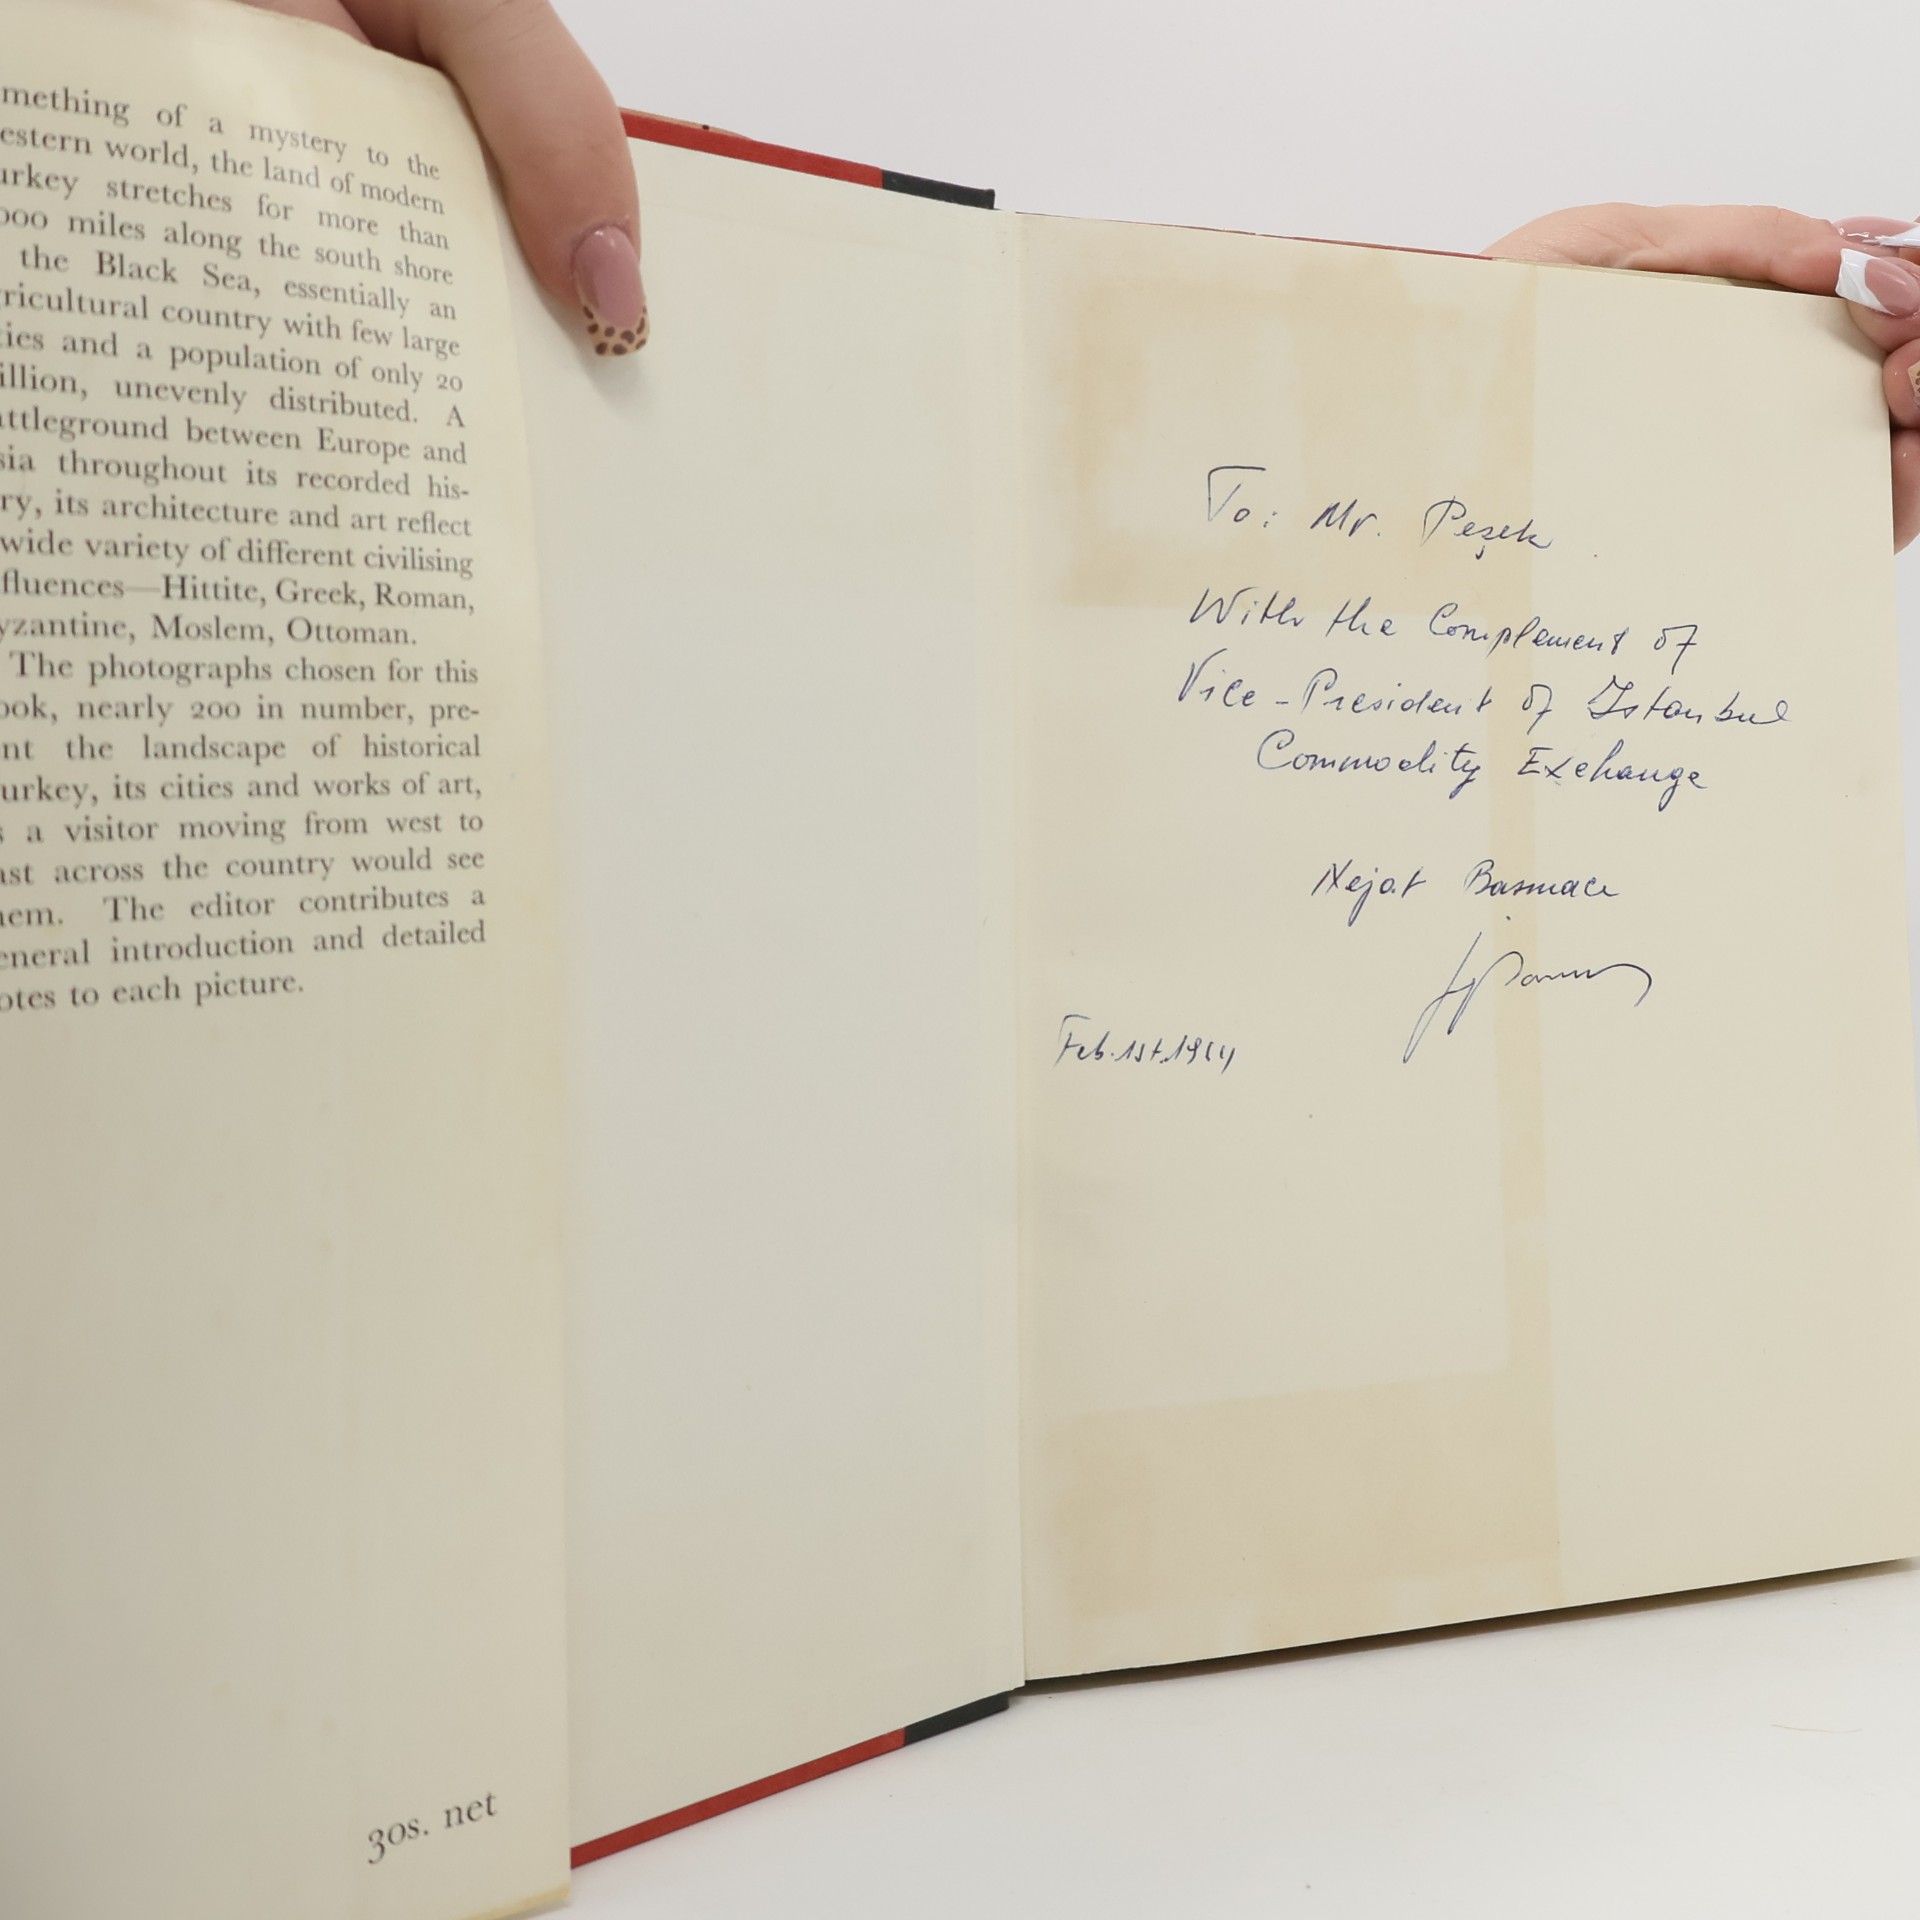 mething of a mystery to the
estern world, the land of modern
urkey stretches for more than
000 miles along the south shore
the Black Sea, essentially an
ricultural country with few large
ties and a population of only 20
illion, unevenly distributed. A
attleground between Europe and
sia throughout its recorded his-
ry, its architecture and art reflect
wide variety of different civilising
fluences—Hittite, Greek, Roman,
yzantine, Moslem, Ottoman.
The photographs chosen for this
ook, nearly 200 in number, pre-
nt the landscape of historical
urkey, its cities and works of art,
s a visitor moving from west to
ast across the country would see
hem. The editor contributes a
eneral introduction and detailed
otes to each picture.
30s. net
To: Mr. Peşek
With the Complement of
Vice-President of Istanbul
Commodity Exchange
Nejat Basmacı
Feb. 1st.